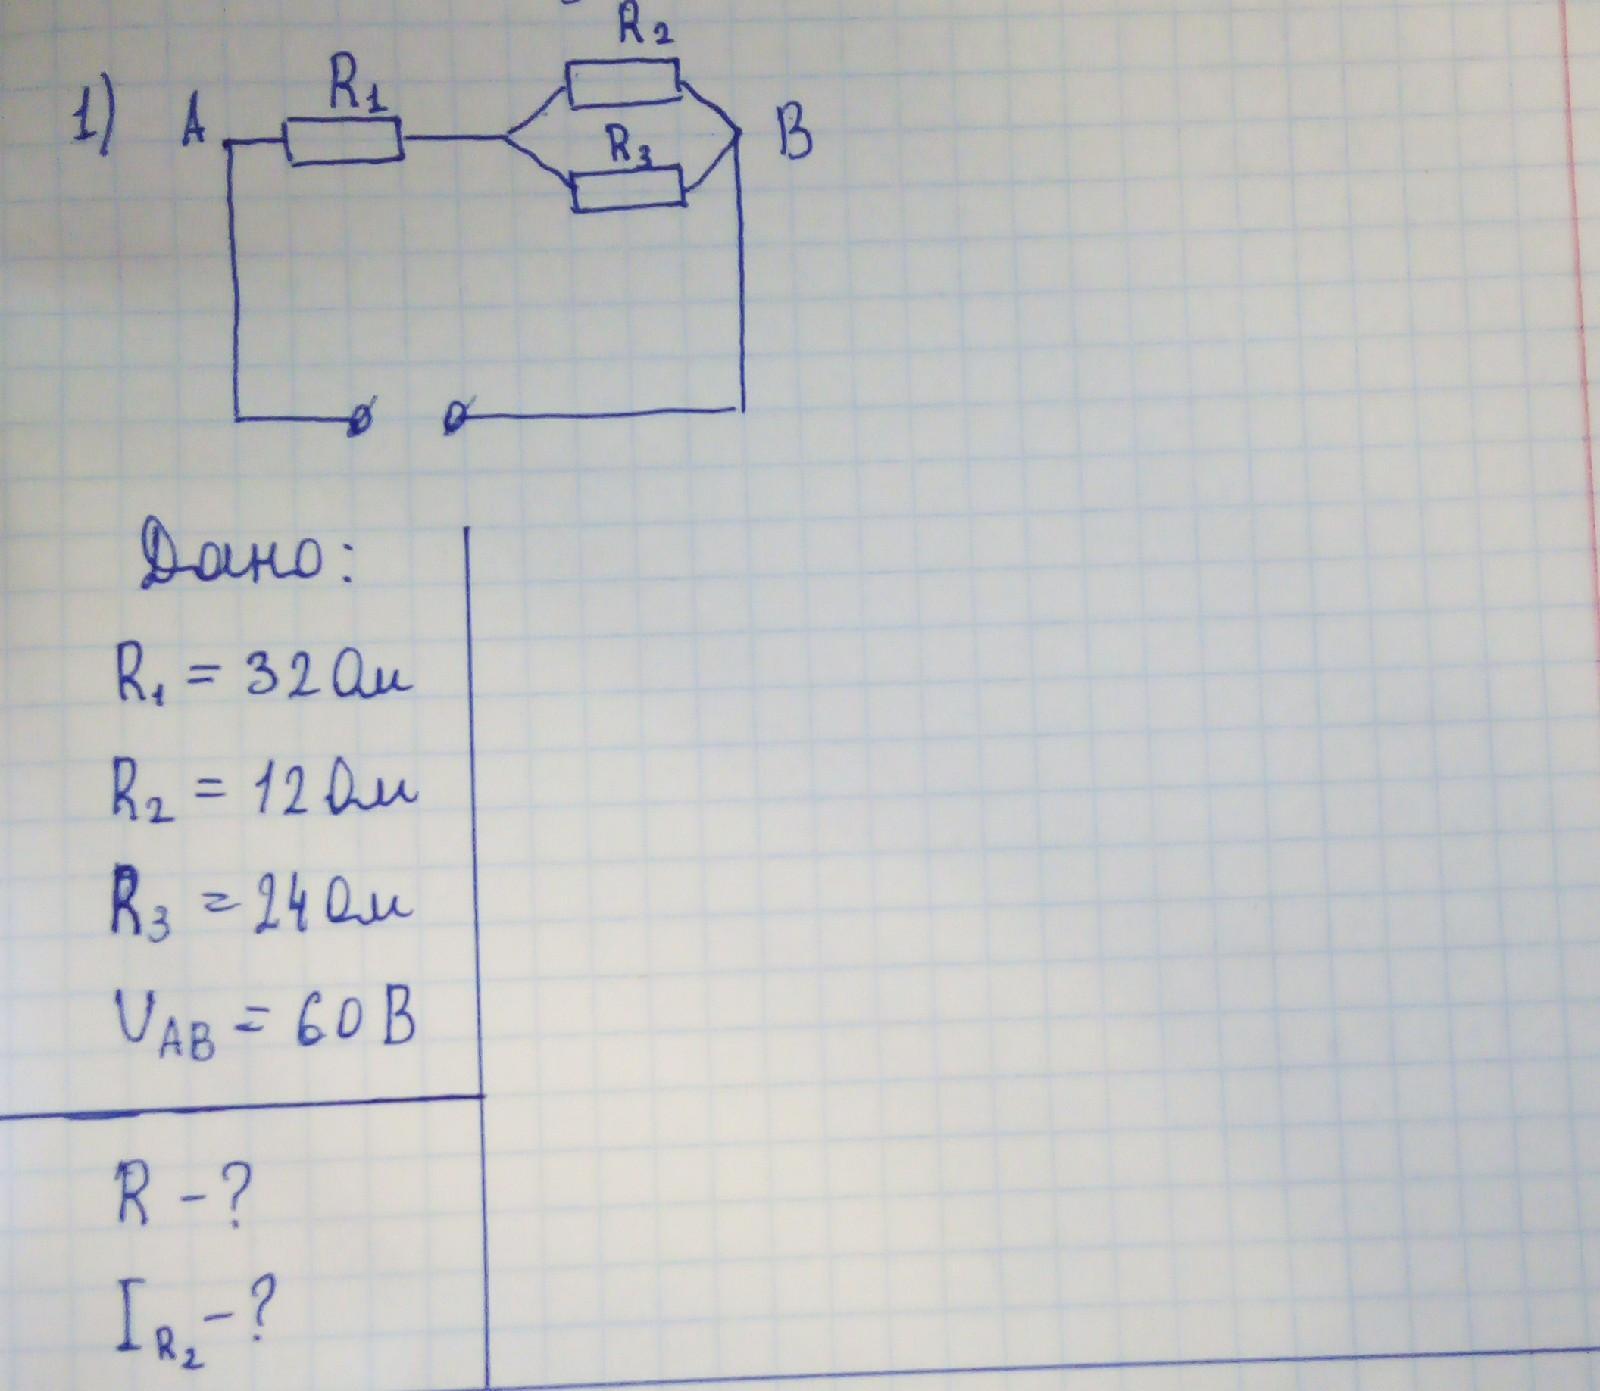 R₂
1) A R₁ B
R₃
Дано:
R₁ = 32 Ом
R₂ = 12 Ом
R₃ = 24 Ом
U_AB = 60 В
R - ?
I_R₂ - ?